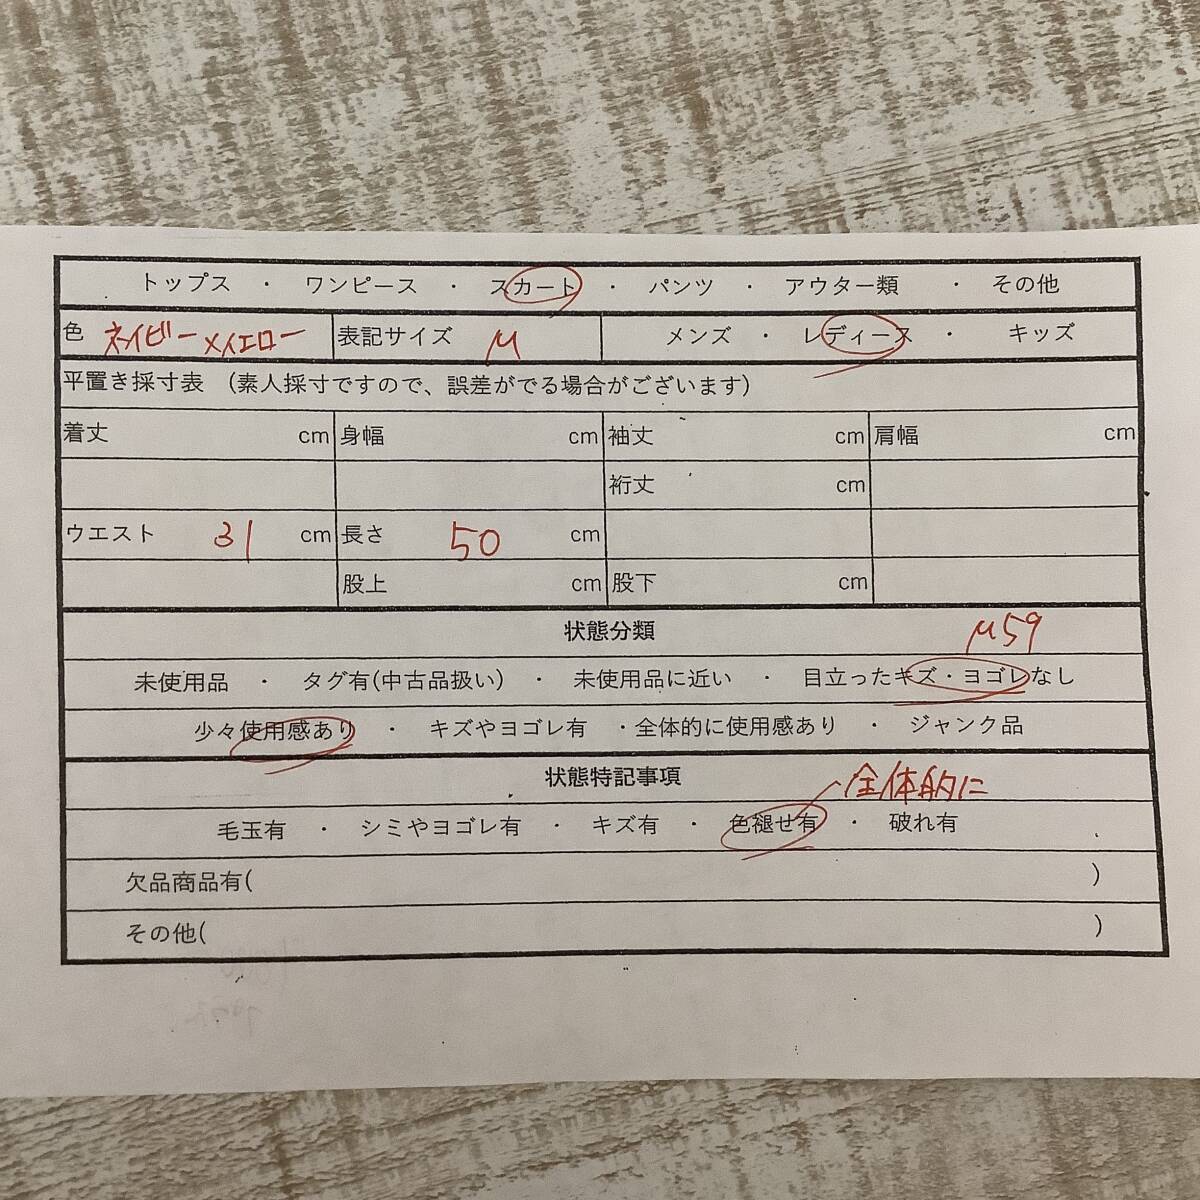 トップス ・ ワンピース ・ スカート ・ パンツ ・ アウター類 ・ その他
色 ネイビー×イエロー 表記サイズ M メンズ ・ レディース ・ キッズ
平置き採寸表 (素人採寸ですので、誤差がでる場合がございます)
着丈 cm 身幅 cm 袖丈 cm 肩幅 cm
裄丈 cm
ウエスト 31 cm 長さ 50 cm
股上 cm 股下 cm
状態分類 M59
未使用品 ・ タグ有(中古品扱い) ・ 未使用品に近い ・ 目立ったキズ・ヨゴレなし
少々使用感あり ・ キズやヨゴレ有 ・全体的に使用感あり ・ ジャンク品
状態特記事項 全体的に
毛玉有 ・ シミやヨゴレ有 ・ キズ有 ・ 色褪せ有 ・ 破れ有
欠品商品有( )
その他( )